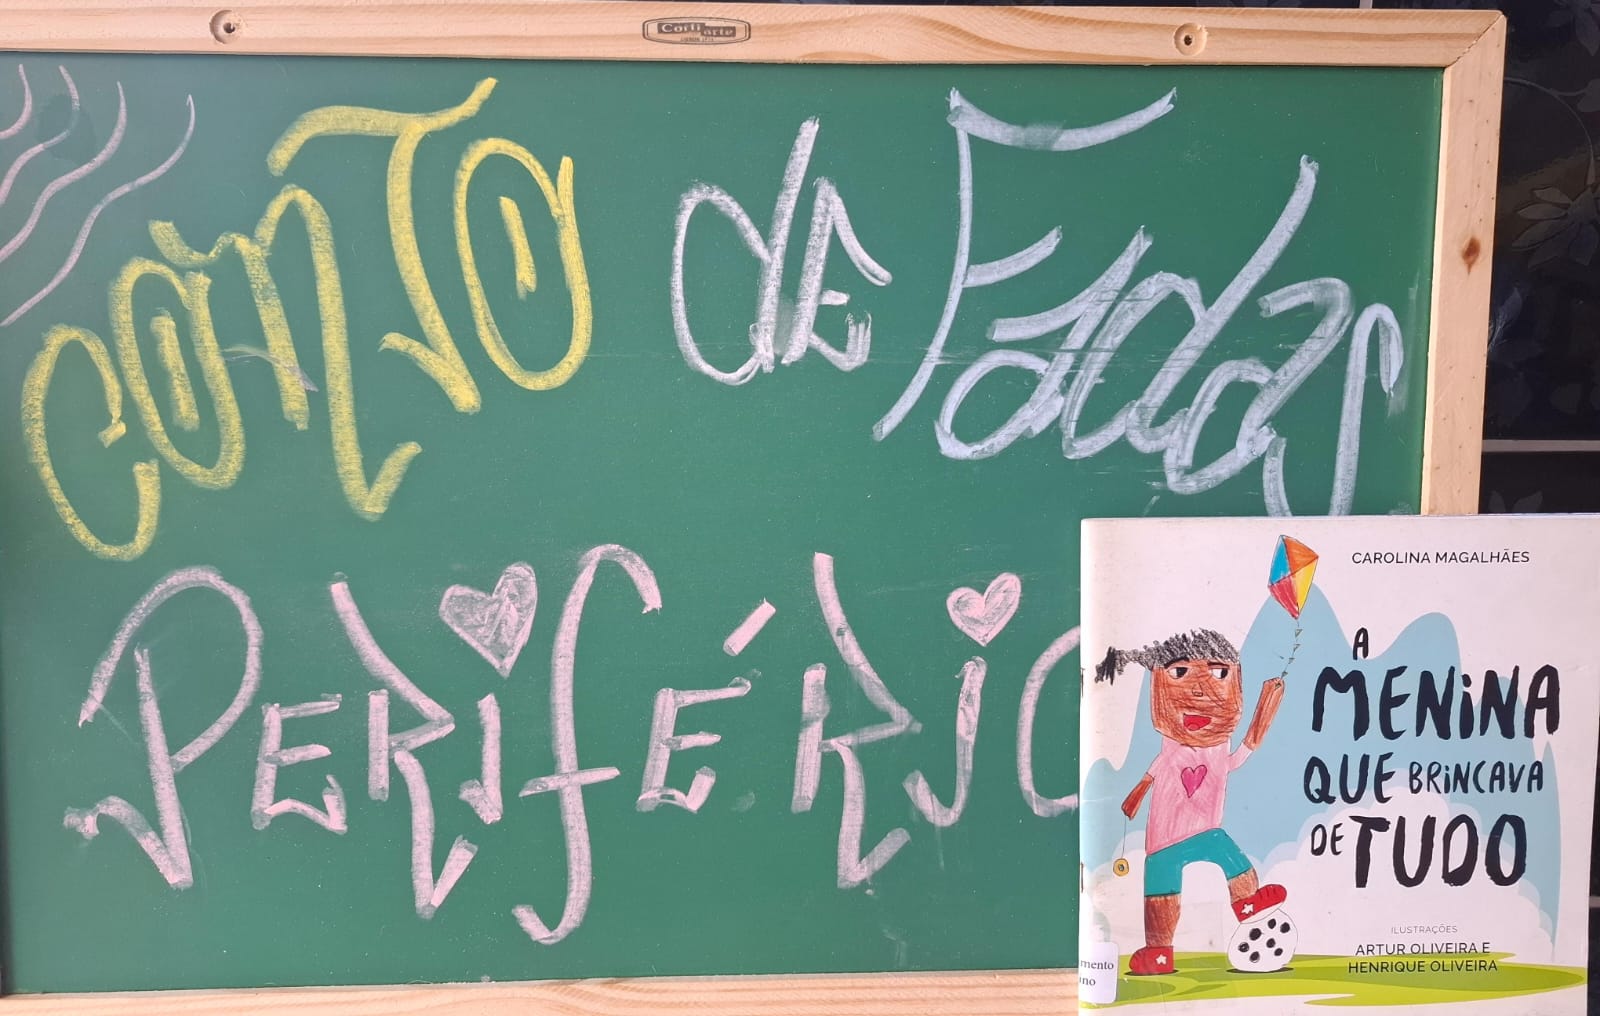 Corti arte
CONTO de Fadas
PERIFÉRIC
CAROLINA MAGALHÃES
A
MENINA
QUE BRINCAVA
DE TUDO
ILUSTRAÇÕES
ARTUR OLIVEIRA E
HENRIQUE OLIVEIRA
mento
ano